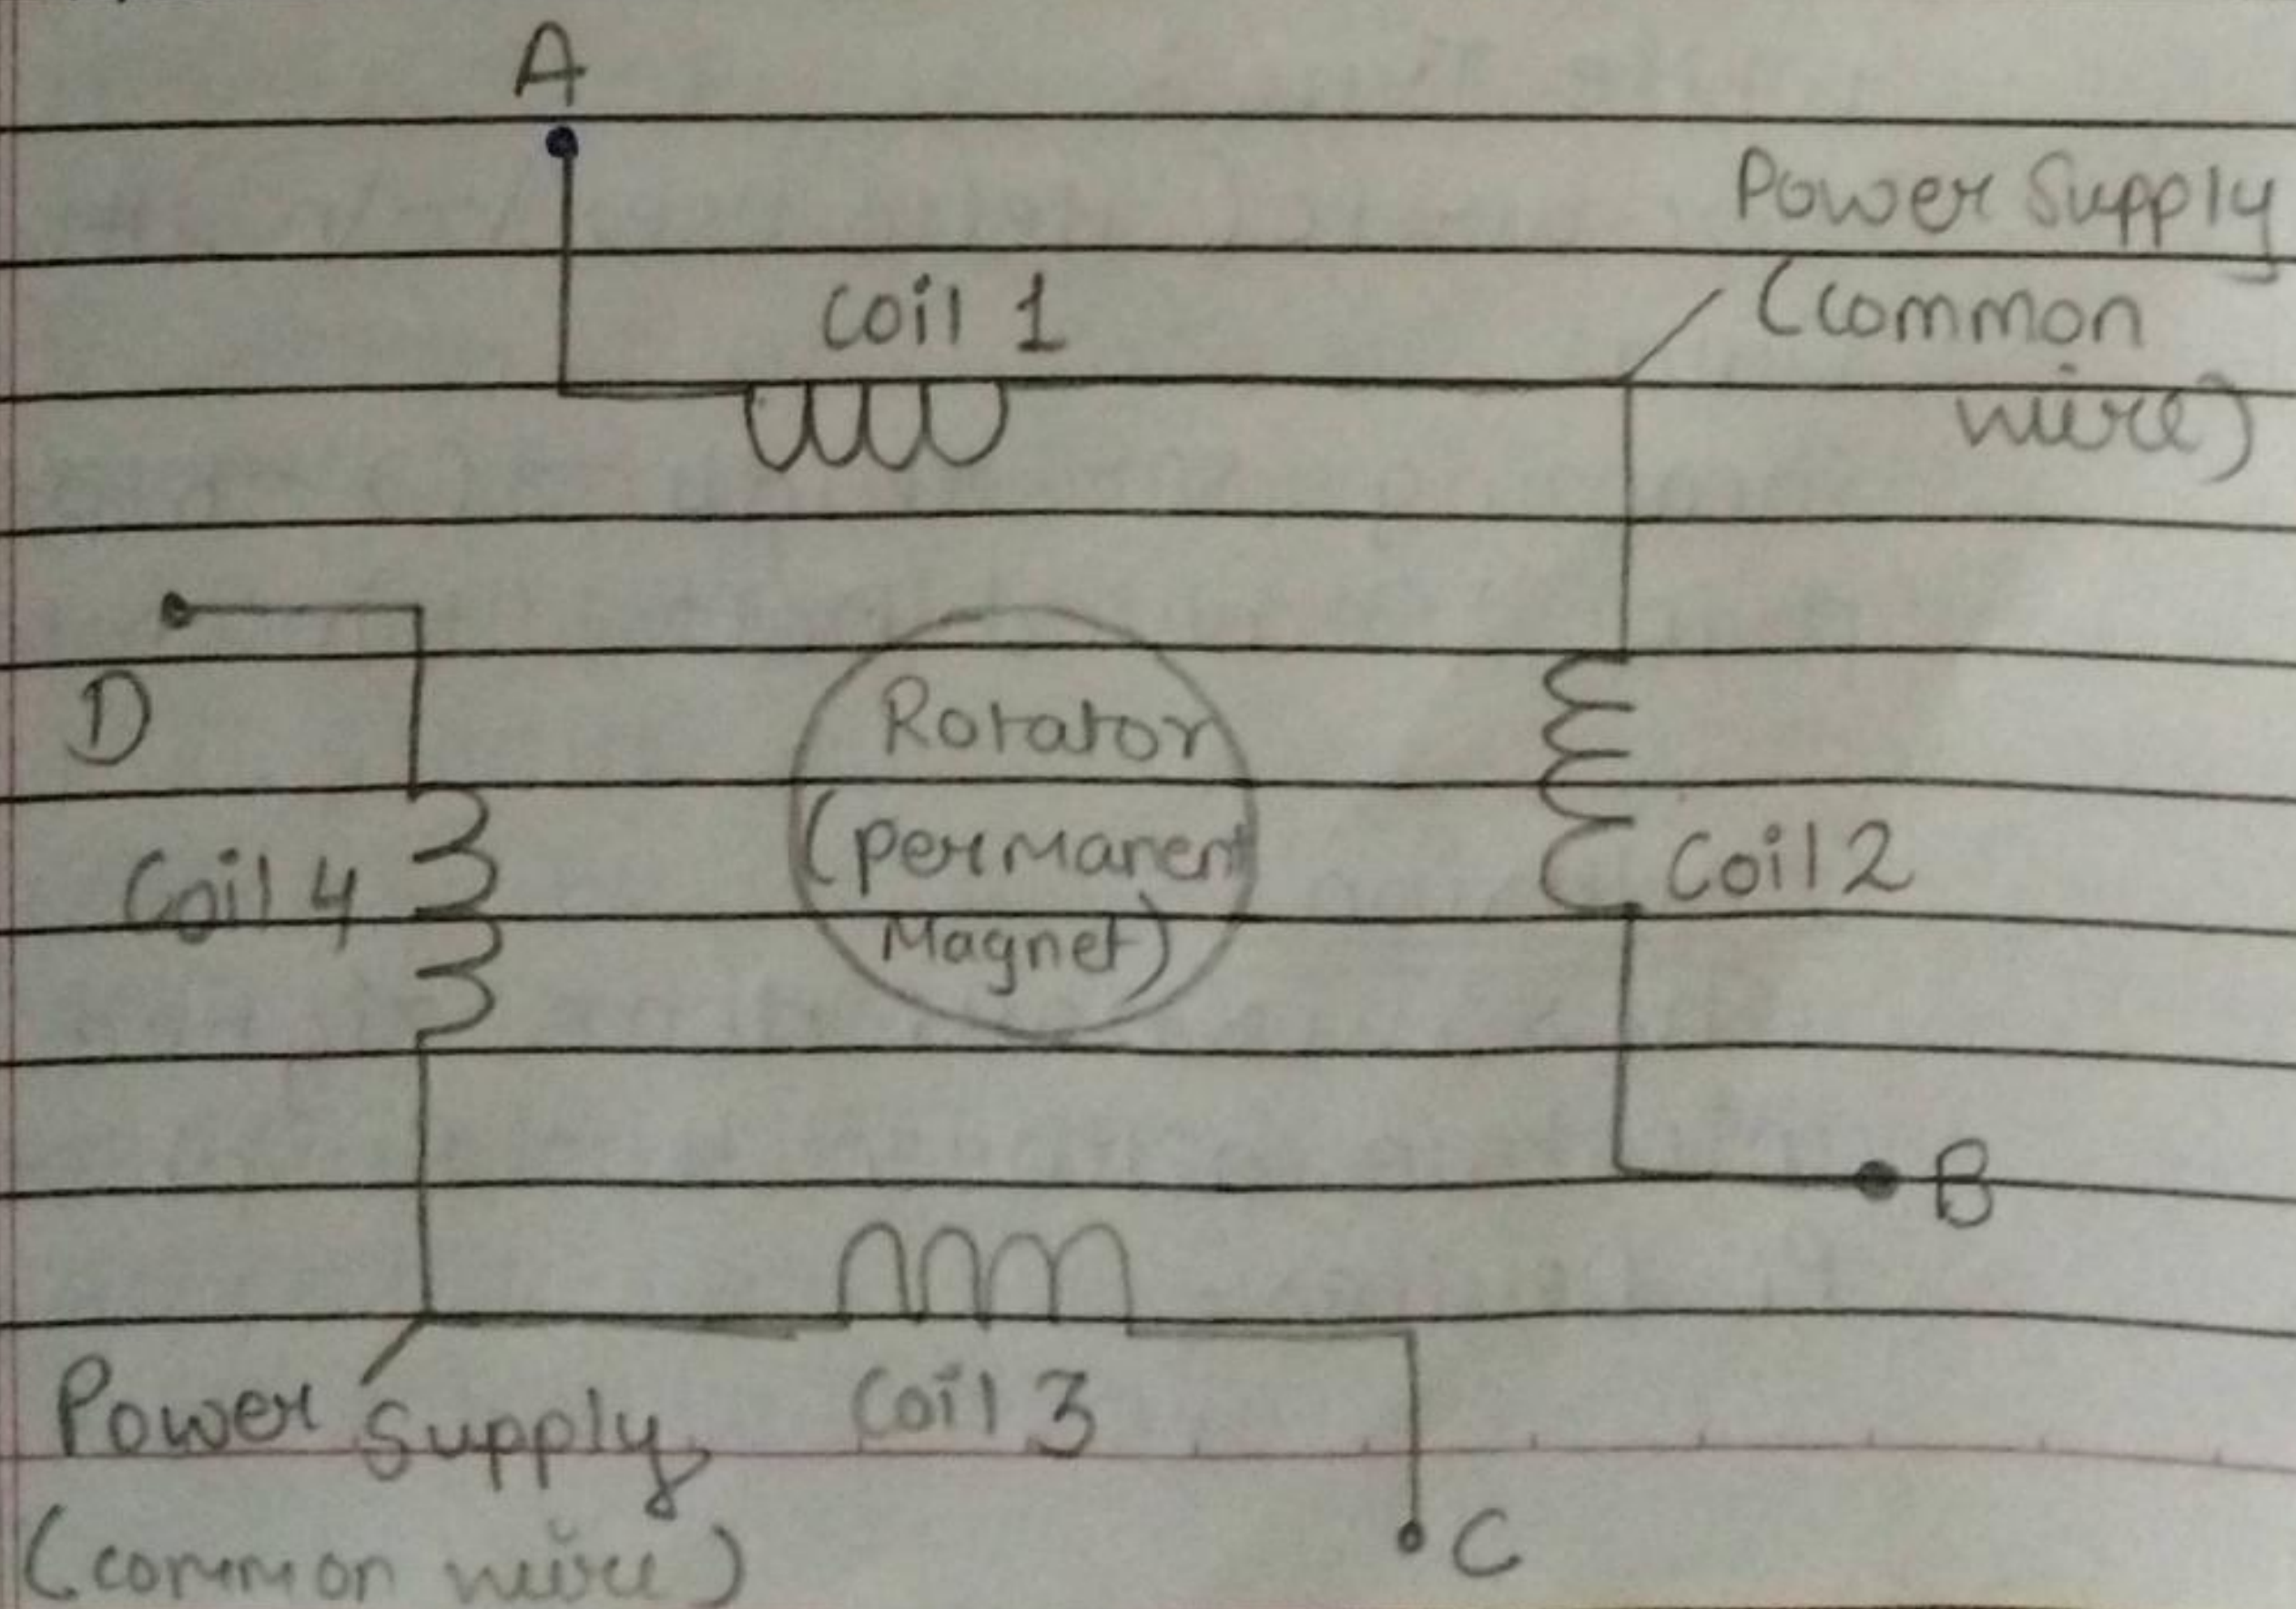 A
Power Supply
(common
wire)
Coil 1
D
Rotator
(permanent
Magnet)
Coil 4
Coil 2
B
Power Supply
(common wire)
Coil 3
C